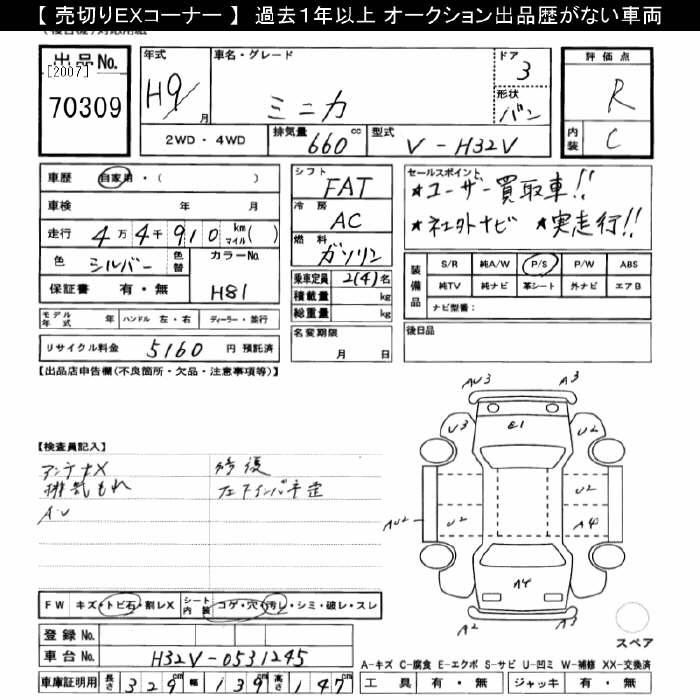 【 売切りEXコーナー 】 過去1年以上 オークション出品歴がない車両
出品No.
[2007]
70309
年式
H9/月
車名・グレード
ミニカ
ドア
3
形状
バン
評価点
R
内装
C
2WD ・ 4WD
排気量
660 cc
型式
V - H32V
車歴 自家用・( )
車検 年 月
走行 4万4千910 km マイル( )
色 シルバー 色替
カラーNo.
H81
保証書 有・無
シフト
FAT
冷房
AC
燃料
ガソリン
乗車定員 2(4)名
積載量 kg
総重量 kg
セールスポイント
★ユーザー買取車!!
★社外ナビ ★実走行!!
装備品
S/R 純A/W P/S P/W ABS
純TV 純ナビ 革シート 外ナビ エアB
ナビ型番:
モデル年式 年 ハンドル 左・右 ディーラー・並行
リサイクル料金 5160 円 預託済
名変期限
月 日
後日品
【出品店申告欄(不良箇所・欠品・注意事項等)】
【検査員記入】
アンテナX
排気もれ
A・U
修復
AU3 A3
U3 E1 U2
U2
AU2 U2 A4
A4
A2 A3
FW キズ・トビ石・割レX
シート内装 コゲ・穴・汚レ・シミ・破レ・スレ
スペア
登録 No.
車台 No. H32V-0531245
車庫証明用 長さ 329cm 幅 139cm 高さ 147cm
A-キズ C-腐食 E-エクボ S-サビ U-凹ミ W-補修 XX-交換済
工具 有・無 ジャッキ 有・無